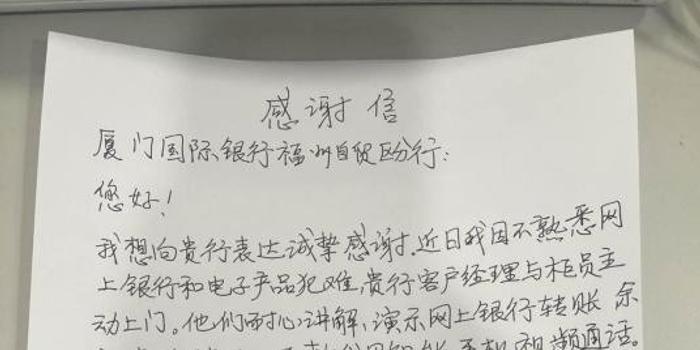 感谢信
厦门国际银行福州自贸区分行：
您好！
我想向贵行表达诚挚感谢.近日我因不熟悉网
上银行和电子产品犯难,贵行客户经理与柜员主
动上门。他们耐心讲解,演示网上银行转账 余
智能手机视频通话。